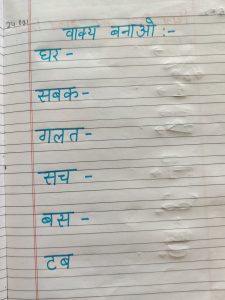 वाक्य बनाओ :-
घर -
सबक -
गलत -
सच -
बस -
टब